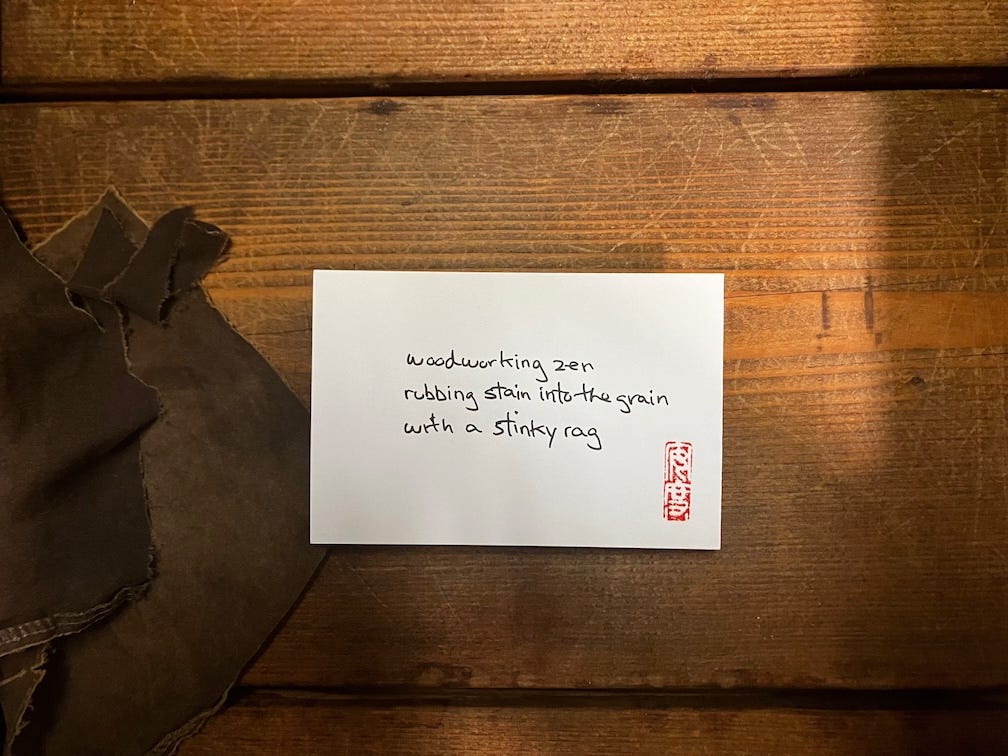 woodworking zen
rubbing stain into the grain
with a stinky rag